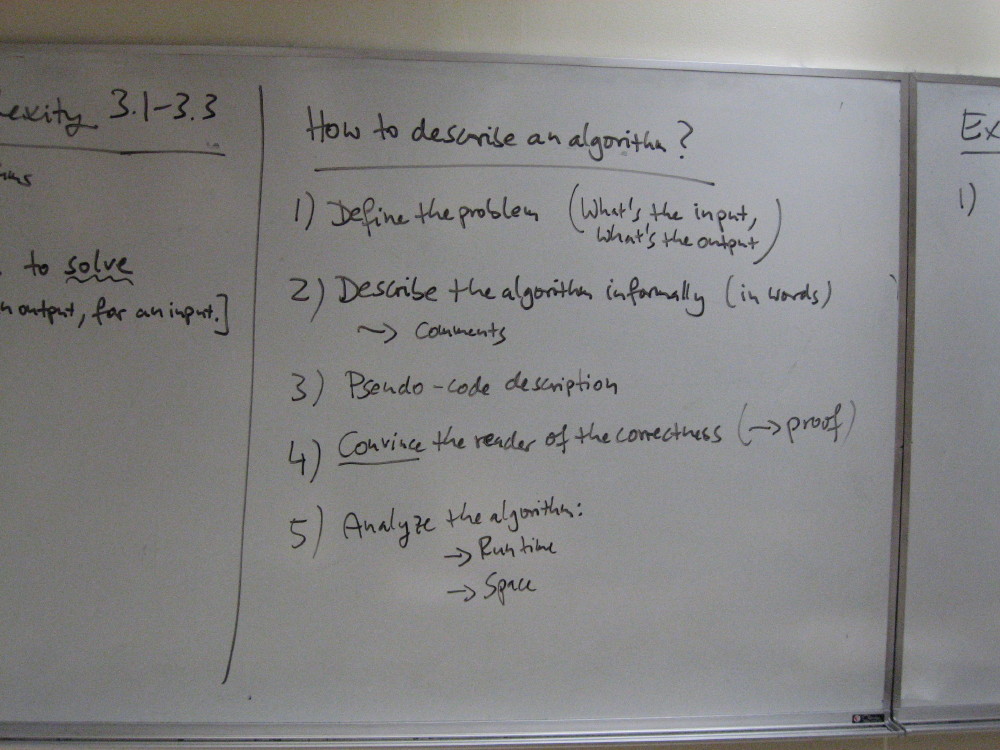 exity 3.1-3.3
to solve
output, for an input.]
How to describe an algorithm?
1) Define the problem (What's the input,
What's the output)
2) Describe the algorithm informally (in words)
~> Comments
3) Pseudo-code description
4) Convince the reader of the correctness (→ proof)
5) Analyze the algorithm:
→ Runtime
→ Space
Ex
1)